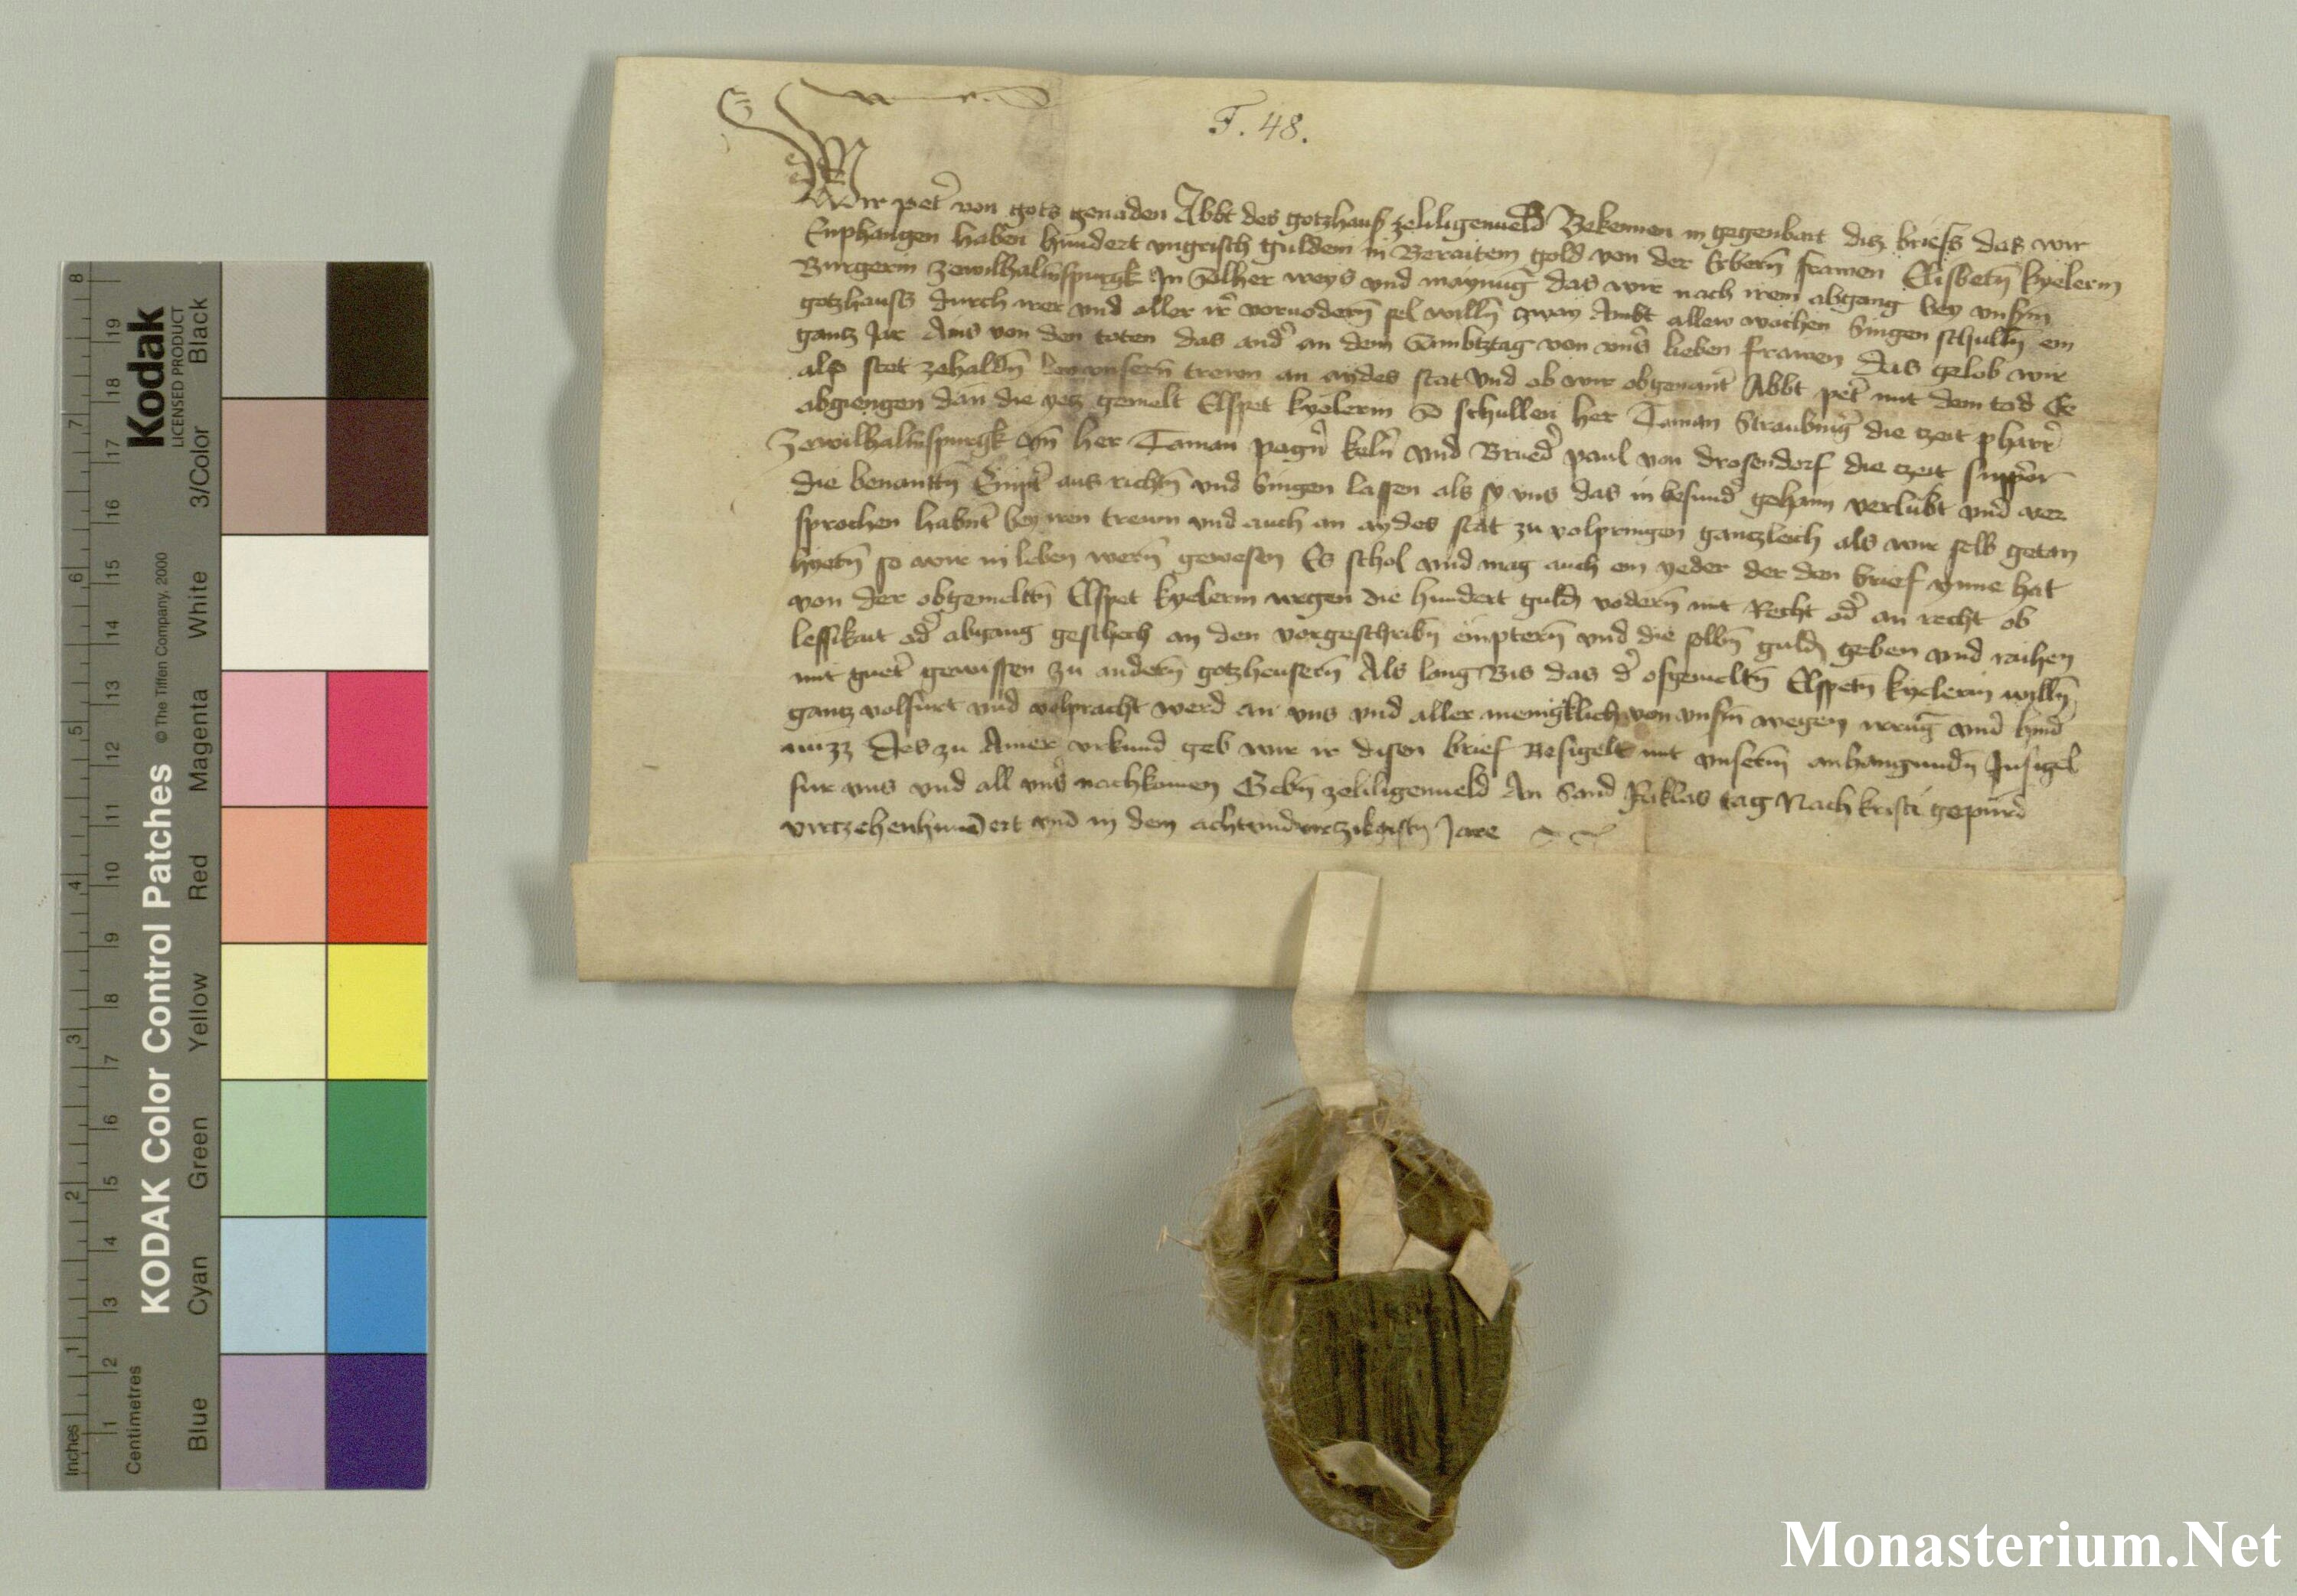 F. 48.
Wir pet̄ von gots genaden Abbt des gotzhaus zeliligenueld Bekennen in gegenburt dicz briefs das wir
Enphangen haben hundert vngrisch guldein in Beraitem gold von der Erbern̄ frawen Elisbetn̄ kyelerin
Burgerin zewilhalmspurgk In solher weys vnd maynūg das wir nach irem abgang bey vnsm̄
gotzhauss durch irer vnd aller ir̄ voruodern̄ sel willn̄ zway Ambt allew wochen Singen schulln̄ ein
gantz Jar Ains von den toten das and̄ an dem Sambtztag von vns̄ lieben frawen das gelob wir
also stet zehaldn̄ bey vnsern̄ trewn an aydes stat Vnd ob wir obgenant̄ Abbt pet̄ mit dem tod Ee
abgiengen dan̄ die yetz gemelt Elspet kyelerin So schullen her Taman Straubinḡ die tzeit pharr̄
Zewilhalmspurgk vn̄ her Taman pagn̄ keln̄ vnd Brued̄ paul von drosendorf die tzeit suppior
die benantn̄ Empt̄ aus richtn̄ vnd Singen lassen als sy vns das in besund̄ gehaim verlubt vnd ver
sprochen habnt̄ bey iren trewn vnd auch an aydes stat zu volpringen gantzleich als wir selb getan
hyetn̄ so wir in leben wern̄ gewesen Es schol vnd mag auch ein yeder der den brief ynne hat
von der obgemeltn̄ Elspet kyelerin wegen die hundert guldn̄ vodern̄ mit Recht od̄ an recht ob
lessikait od̄ abgang geschech an den vorgeschribn̄ emptern̄ vnd die selbn̄ guldn̄ geben vnd raihen
mit guet̄ gewissen zu andern̄ gotzheusern̄ Als lang Bis das d̄ ofgemeltn̄ Elspetn̄ kyelerin willn̄
gantz volfurt vnd volpracht werd an vns vnd aller menigklich von vnsm̄ wegen irrūg vnd hind̄
nuzz Des zu Ainer vrkund geb wir ir disen brief Besigelt mit vnserm̄ anhangundn̄ Insigel
fur vns vnd all vns̄ nachkomen Gebn̄ zeliligenueld An Sand Niklas tag Nach kristi gepurd
virtzehenhundert vnd in dem achtundvirtzikgistn̄ Jare
Kodak
LICENSED PRODUCT
KODAK Color Control Patches
© The Tiffen Company, 2000
Inches 1 2 3 4 5 6 7 8
Centimetres 1 2 3 4 5 6 7 8 9 10 11 12 13 14 15 16 17 18 19
Blue Cyan Green Yellow Red Magenta White 3/Color Black
Monasterium.Net